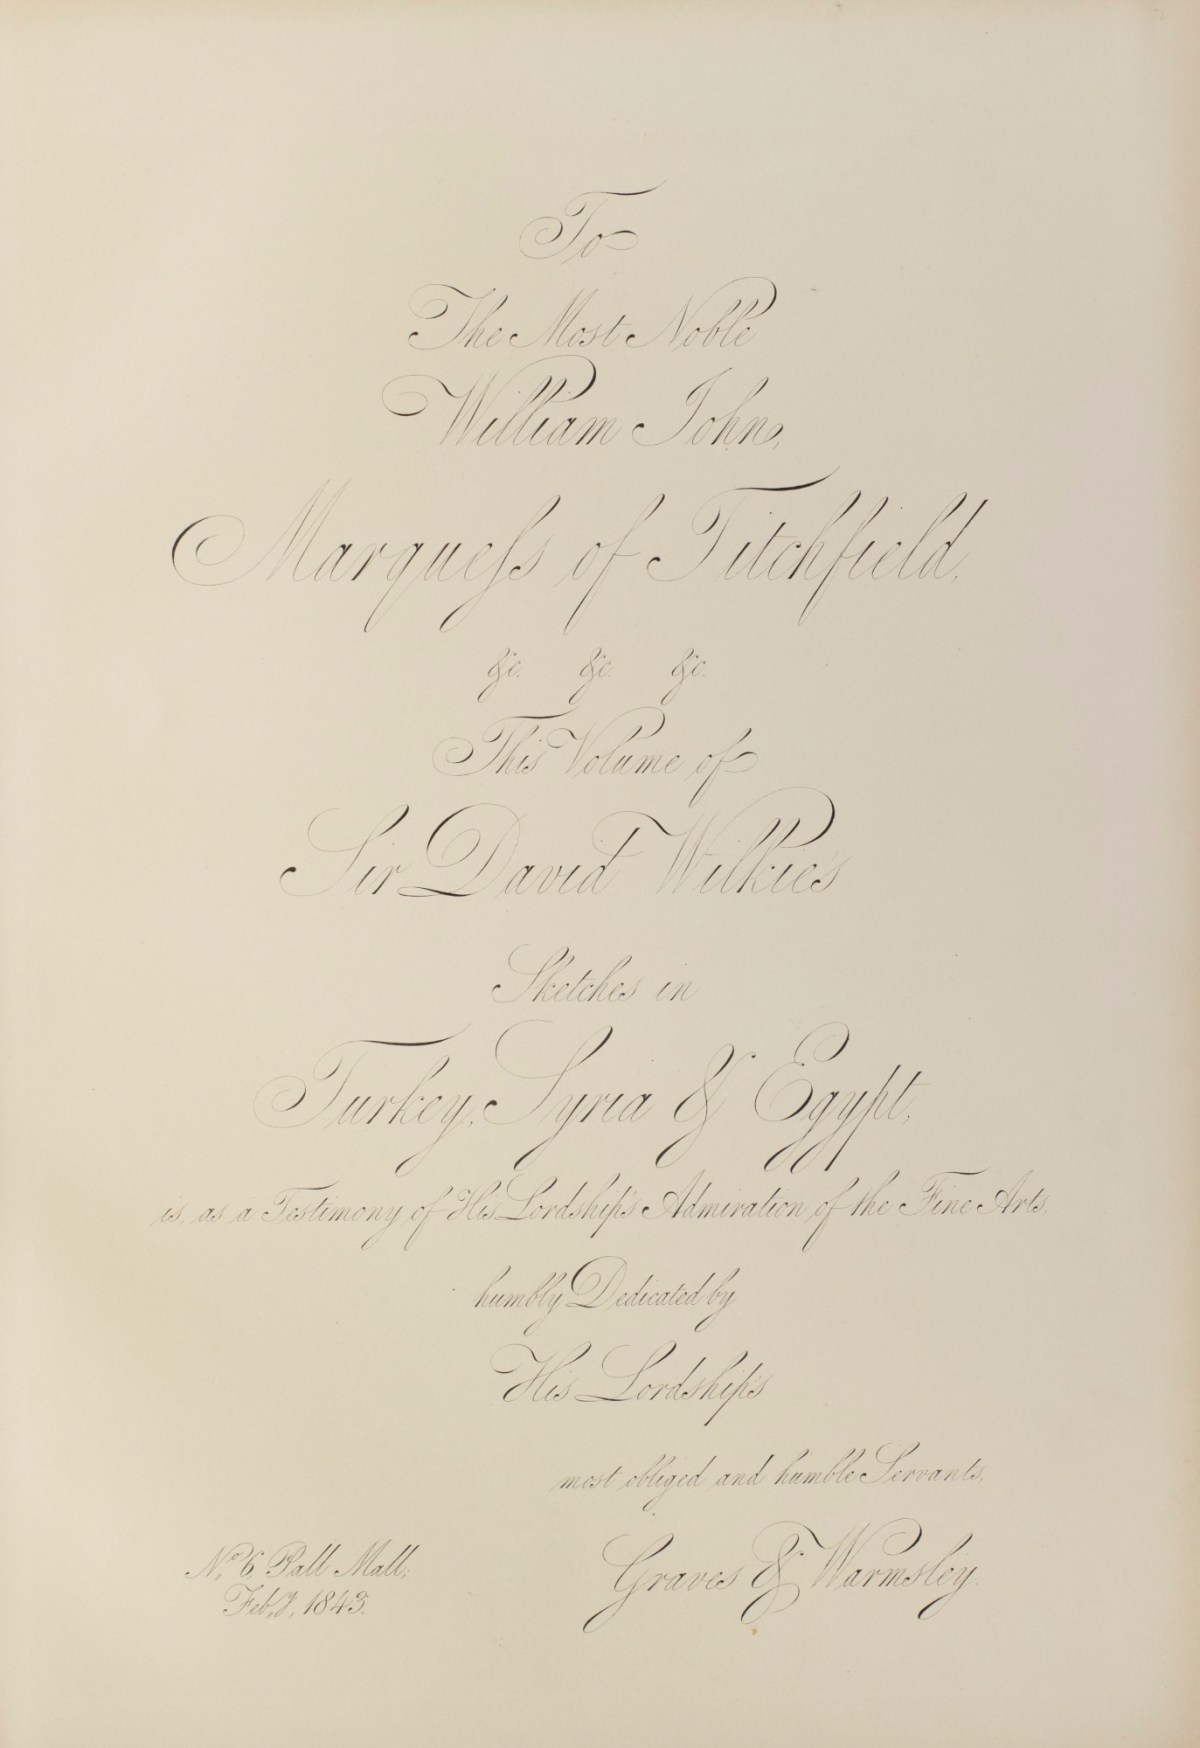 To
The Most Noble
William John,
Marquess of Titchfield,
&c. &c. &c.
This Volume of
Sir David Wilkie's
Sketches in
Turkey, Syria & Egypt,
is, as a Testimony of His Lordship's Admiration of the Fine Arts,
humbly Dedicated by
His Lordship's
most obliged and humble Servants,
Graves & Warmsley.
No. 6 Pall Mall,
Feby. 1843.